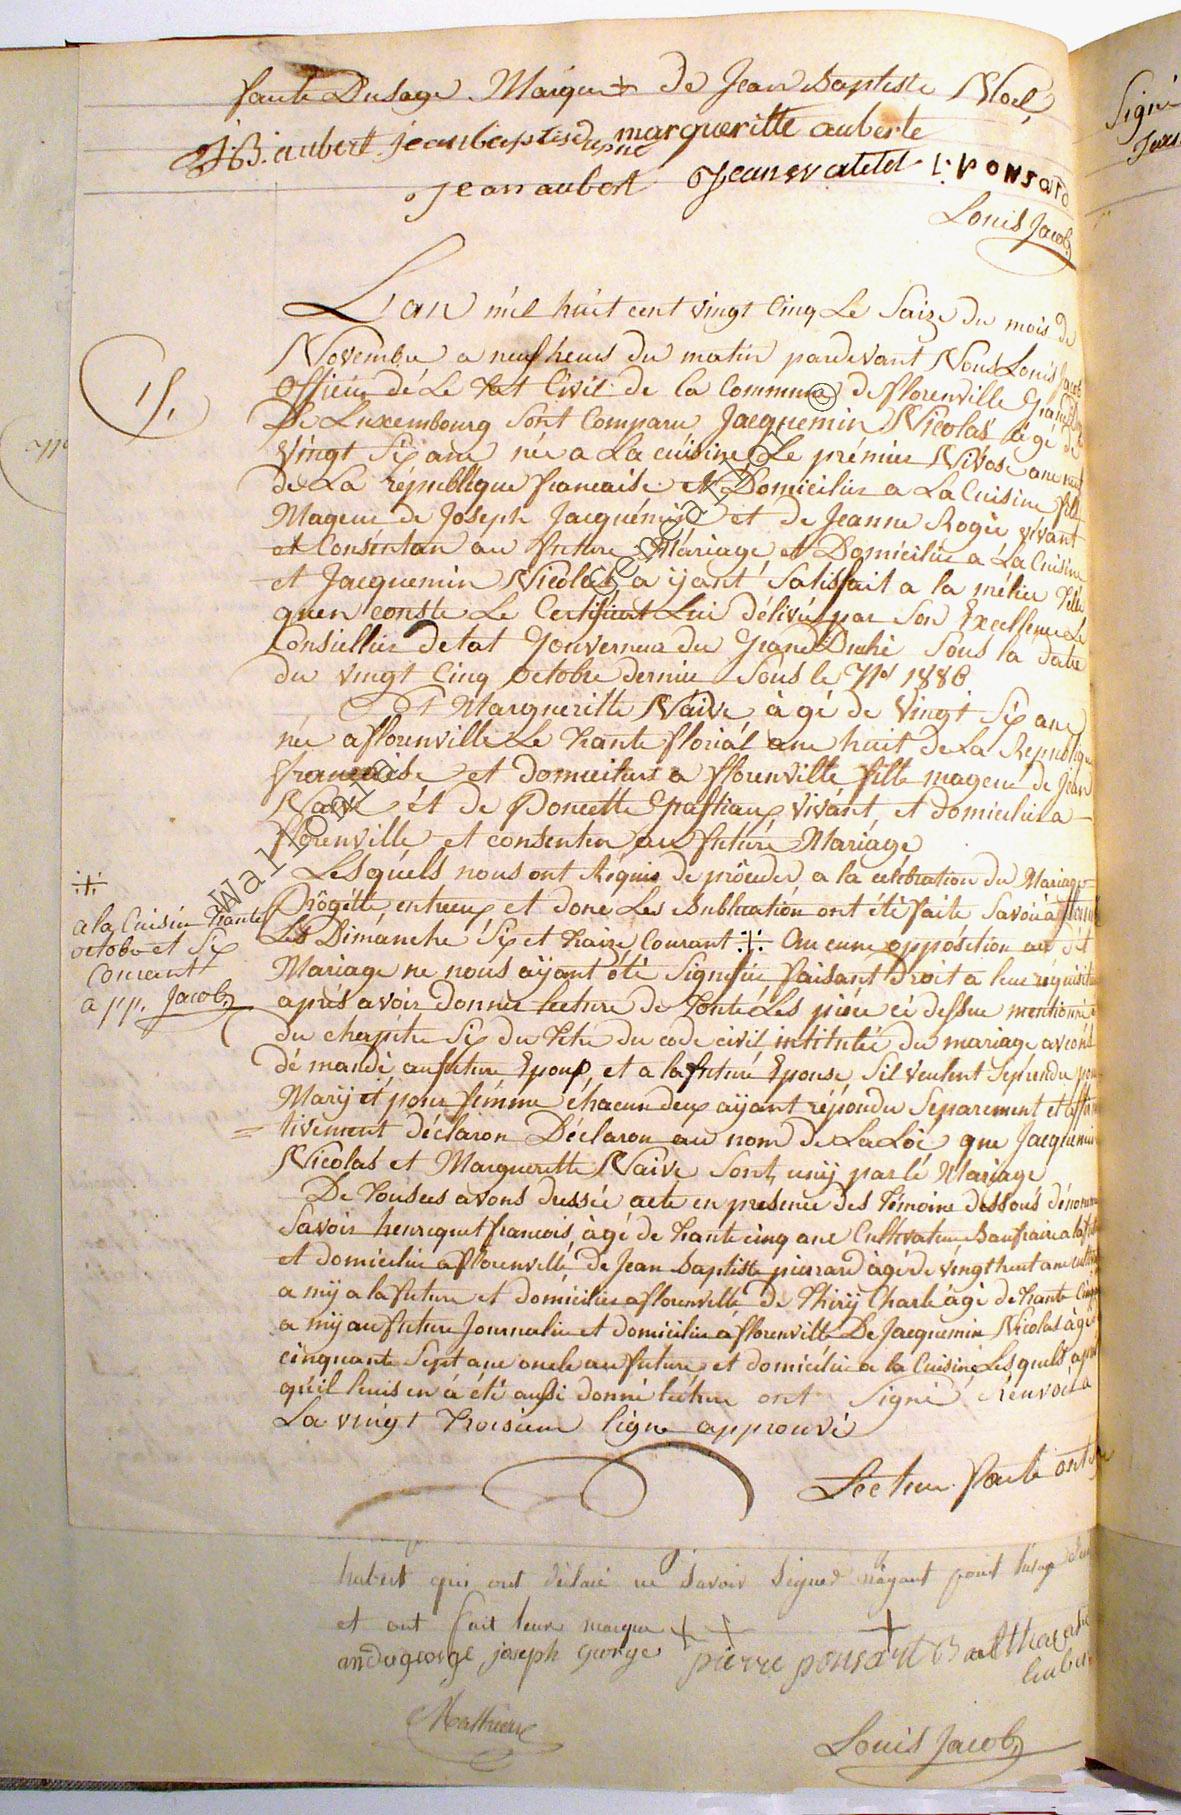 faute Dusage. Marque + de Jean Baptiste Noel
J:B: aubert jeanbaptiste margueritte auberte
Jean aubert Jean watelet L: PONSard
Louis Jacob
L'an mil huit cent vingt Cinq Le Saize du mois de
Novembre a neuf heurs du matin pardevant Nous Louis Jacob
Officier dé Le tat Civil de la Commune de florenville Grand
De Luxembourg Sont Comparu Jacquemin Nicolas àgé de
Vingt Six ane née a La cuisine Le prémier Nivose ane neuf
de La républlique francaise et Domicilier a La Cuisine fils
Mageur de Joseph Jacquémin et de Jeanne Rogée vivant
et Consentan au future Mariage et Domicilier a La Cuisine
et Jacquemin Nicolas a ÿant Satisfait a la mélice telle
quen conste Le Certificat Lui délivré par Son Excellence Le
Consiellier detat Gouverneur du Grand Duché Sous la date
du vingt Cinq octobre dernier Sous le No 1886
Et Margueritte Naive àgé de Vingt Six ane
née a florenville Le trante florial ane huit de La Republique
francaise et domicilier a florenville fille mageur de Jean
Naive ét de Poncette Gpastiaux vivant et domicilier a
florenville et consenten au futur Mariage
Lesquéls nous ont Réquis de procéder a la célébration du Mariage
Progétte entreux et donc Les Publication ont été faite Savoir a
Les Dimanche Six et traize Courant ⁜ Aucune oppósition au dit
Mariage ne nous aÿant été Signifiée faisant Droit a leur réquisition
aprés avoir donner lecture de toute Les pièce ci dessue mentionnée
du chapitre Six du titre du code civil intitulée du mariage avons
dé mandé au future Epoux et a la future Epouse Sil veulent Seprendre pour
Marÿ ét pour fémme chacun deux aÿant répondu Separement et affirma
tivement déclaron Déclaron au nom de La Loi que Jacquemin
Nicolas et Margueritte Naive Sont unij par lé Mariage
De tousces avons dressée acte en presence des témoins dessous dénommé
Savoir henrequet francois àgé de trante cinq ane Cultivateur Baufraire a la future
et domicilier a florenvelle de Jean Baptiste pierrard àgé de vingt heut ane
a mÿ a la future et domicilier a florenville de Thirÿ Charle àgé de trante
a mÿ au future Journalier et domicilier a florenville De Jacquemin Nicolas àgé
cinquante Sept ane oncle au future et domicilier a la Cuisine Lesquels apré
quéil leuis en à été aussi donné lecture ont Signé Rénvoi a
La vingt troisieme ligne approuvé
⁜
a la Cuisine trante
octobre et Six
Courant
app. Jacob
15.
Lecture faite ont
hubert qui ont déclaré ne Savoir Signer nayant point lusage
et ont fait leur marque + + +
andrugeorge joseph George pierre ponsart Balthazard
hubert
Mathieu
Louis Jacob
Signé
Wallonia Genealogy ©